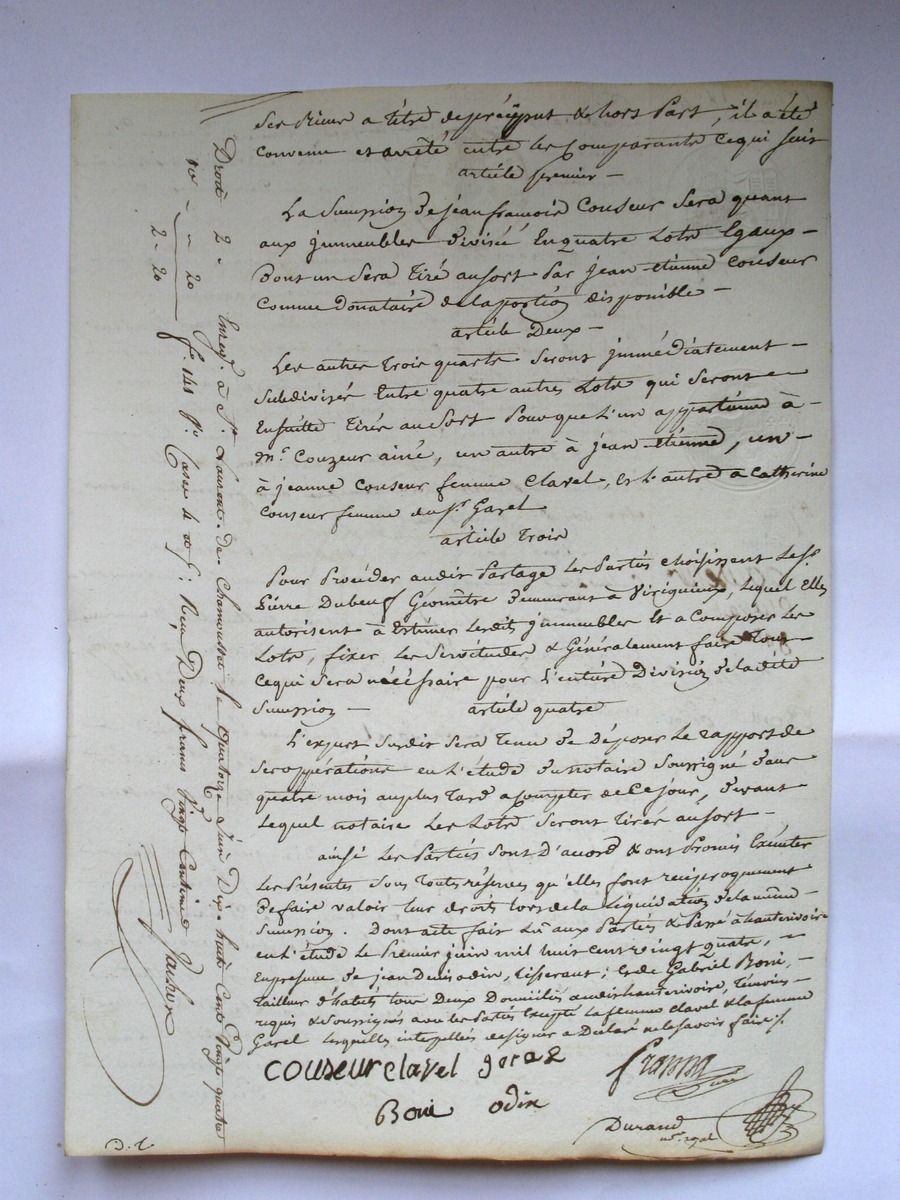 ses Mineurs a titre de préciput & hors Part, il a été
convenu et arrêté entre les Comparants ce qui suit
article premier —
La Succession de jean francois Couseur Sera quant
aux jmmeubles divisée En quatre Lots Egaux —
Dont un Sera Tiré au sort Par jean etienne Couseur
comme Donataire de la portion disponible —
article Deux —
Les autres Trois quarts Seront jmmédiatement —
Subdivisés Entre quatre autres Lots qui Seront
Ensuitte Tirés au Sort Pour que L'un appartienne à —
Mr. Couzeur ainé, un autre à jean etienne, un —
à jeanne Couseur femme Clavel, et L'autre a Catherine
Couseur femme du Sr. Garel
article Trois
Pour Procéder audit Partage Les Parties choisissent Le Sr.
Pierre Dubeuf Géomètre demeurant à Viriquieux, Lequel Elles
autorisent à Estimer Lesdits jmmeubles Et a Composer Les
Lots, fixer Les Servitudes & Généralement faire Tout
Ce qui Sera nécéssaire pour L'entière Division de ladite
Succession — article quatre
L'expert Susdit Sera Tenu de Déposer Le rapport de
Ses oppérations en L'étude du notaire Soussigné dans
quatre mois au plus Tard a Compter de Ce jour, devant
Lequel notaire Les Lots Seront Tirés au sort —
ainsi Les Parties Sont D'accord & ont Promis Exécuter
Les Présentes Sous Toutes réserves qu'elles font réciproquement
De faire valoir leur droits lors de la Liquidation de la même —
Succession. Dont acte fait Lu aux Parties & Passé à hauterivoire
en L'étude Le Premier juin mil huit Cent vingt quatre, —
En présence de jean Denis odin, tisserant; Et de Gabriel Boni, —
Tailleur d'habits tous Deux Domiciliés audit hauterivoire, Témoins —
requis & Soussignés avec les Parties Excepté La femme Clavel & la femme
Garel Lesquelles interpellées de signer a Déclaré ne le savoir faire ./.
couseur clavel garel
Boni odin
Durand
nre. royal
Droit 2 —
10 — 20
2 - 20
Enregt. à St. Laurent de Chamousset le quatorze juin Dix huit Cent Vingt quatre
fo. 141 Ro. Case 4 & 5. Reçu Deux francs Vingt Centimes
D. L.